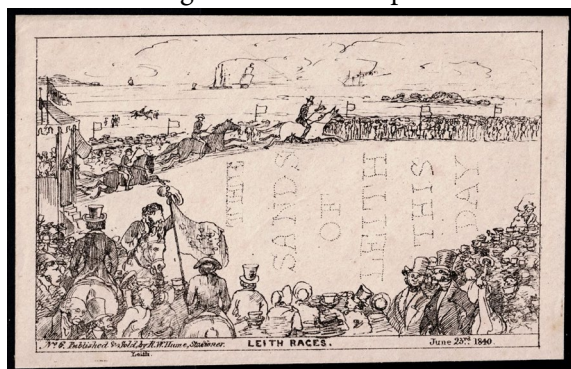 THE
SANDS
OF
LEITH
THIS
DAY
No. 6. Published & Sold, by R. W. Hume, Stationer.
Leith.
LEITH RACES.
June 23rd. 1840.